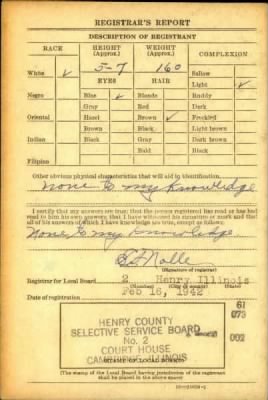 REGISTRAR'S REPORT
DESCRIPTION OF REGISTRANT
RACE HEIGHT (Approx.) WEIGHT (Approx.) COMPLEXION
White ✓ 5-7 160 Sallow
EYES HAIR Light ✓
Negro Blue ✓ Blonde Ruddy
Gray Red Dark
Oriental Hazel Brown ✓ Freckled
Brown Black Light brown
Indian Black Gray Dark brown
Bald Black
Filipino
Other obvious physical characteristics that will aid in identification
None to my knowledge
I certify that my answers are true; that the person registered has read or has had
read to him his own answers; that I have witnessed his signature or mark and that
all of his answers of which I have knowledge are true, except as follows:
None to my knowledge
(Signature of registrar)
Registrar for Local Board 2 Henry Illinois
(Number) (City or county) (State)
Date of registration Feb 16, 1942
61
073
002
HENRY COUNTY
SELECTIVE SERVICE BOARD
No. 2
COURT HOUSE
CAMBRIDGE, ILLINOIS
(STAMP OF LOCAL BOARD)
(The stamp of the Local Board having jurisdiction of the registrant
shall be placed in the above space)